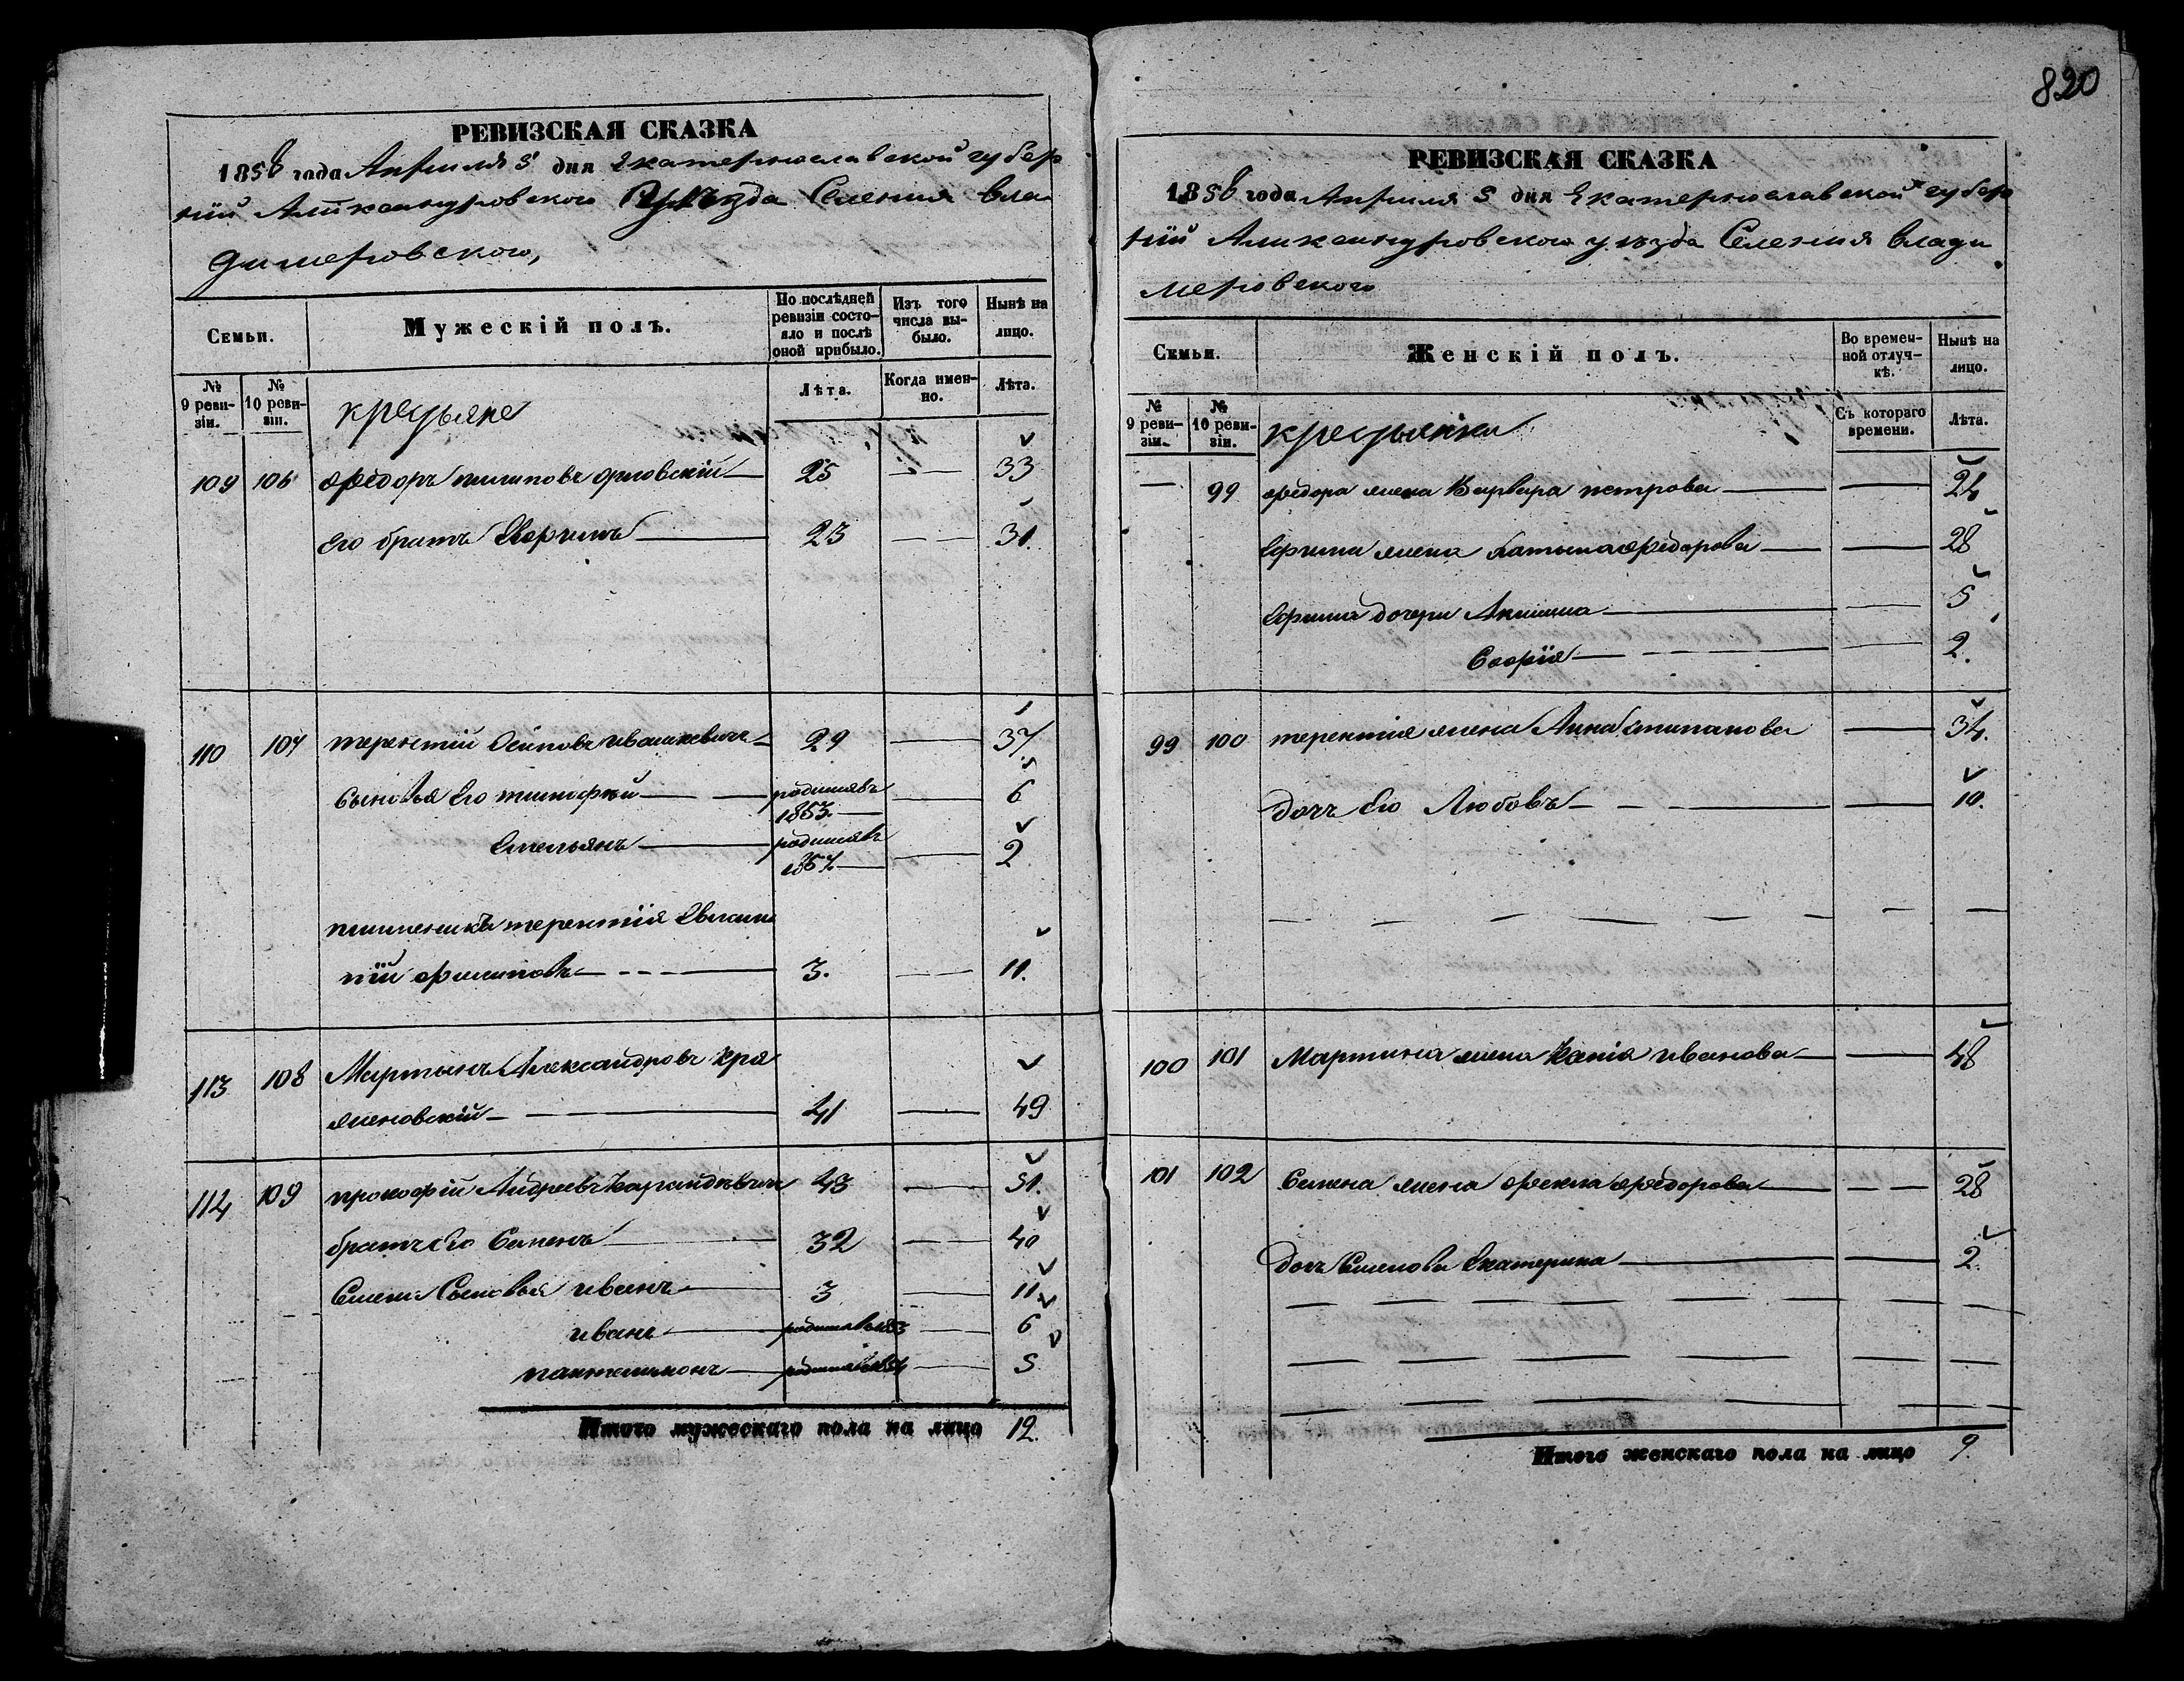 820
РЕВИЗСКАЯ СКАЗКА
1858 года Априля 5 дня Екатеринославской губер
нїи Александровского уѣзда Селения вла
димеровского,
Семьи.
Мужескій полъ.
По послѣдней ревизіи состояло и послѣ оной прибыло.
Изъ того числа выбыло.
Нынѣ на лицо.
№ 9 ревизіи.
№ 10 ревизіи.
крестьяне
Лѣта.
Когда именно.
Лѣта.
109 106 Федоръ Орловскій 25 33
Его братъ Ефимъ 23 31.
110 107 терентій Осиповъ ивашкевичъ 29 37
Сыновья Его тимофѣй родился въ 1853. 6
Емельянъ родился въ 1857 2
племеникъ терентія
пій филиповъ 3. 11.
113 108 Мартынъ Александровъ кря
жановскій 41 49
114 109 прокофій Андреевъ 43 51.
братъ Его Семенъ 32 40
Семена Сыновья иванъ 3 11
иванъ родился 1853 6
пантелимонъ родился 1854 5
Итого мужескаго пола на лицо 12.
РЕВИЗСКАЯ СКАЗКА
1858 года Априля 5 дня Екатеринославской губер
нїи Александровского уѣзда Селения влади
меровского
Семьи.
Женскій полъ.
Во временной отлучкѣ.
Нынѣ на лицо.
№ 9 ревизіи.
№ 10 ревизіи.
крестьянки
Съ котораго времени.
Лѣта.
— 99 Федора жена Варвара петрова 24
Ефима жена Федорова 28
Ефима дочери Акилина 5
Софїя 2.
99 100 терентія жена Анна Степанова 34.
дочь Его Любовь 10.
100 101 Мартина жена иванова 48
101 102 Семена жена Фекла Федорова 28
дочь Семенова Екатерина 2.
Итого женскаго пола на лицо 9.